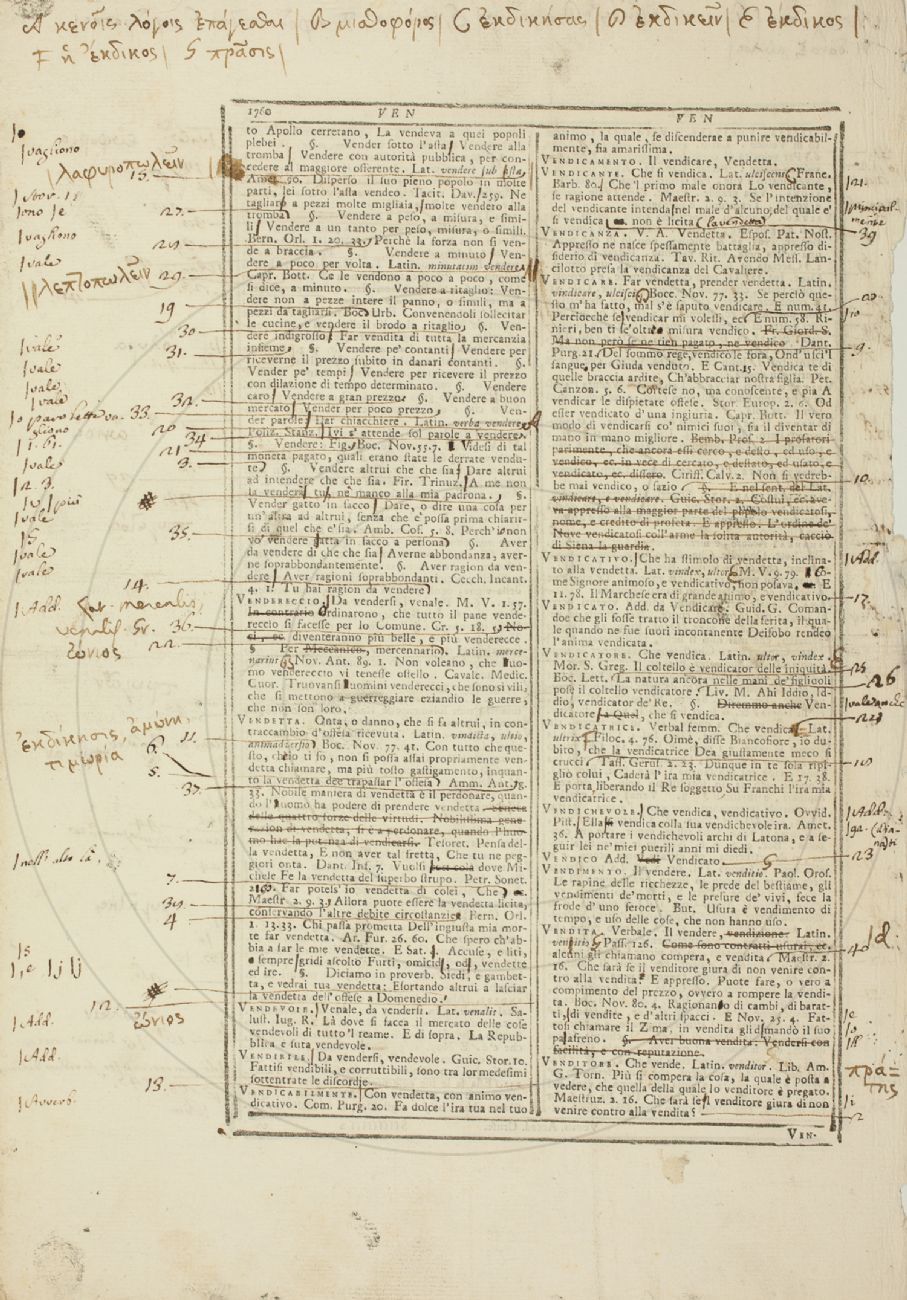 A κενοῖς λόγοις ἐπάγεσθαι | B μισθοφόρος | C ἐκδικήσας | D ἐκδικεῖν | E ἔκδικος |
F ἡ ἔκδικος | G πρᾶσις |
1760 VEN
VEN
to Apollo cerretano, La vendeva a quei popoli
plebei. §. Vender sotto l'asta Vendere alla
tromba Vendere con autorità pubblica, per con-
cedere al maggiore offerente. Lat. vendere sub hasta
Am. 90. Disperso il suo pieno popolo in molte
parti, sei sotto l'asta vendeo. Tacit. Dav. 259. Ne
tagliare a pezzi molte migliaja, molte vendero alla
tromba §. Vendere a peso, a misura, e simi-
li Vendere a un tanto per peso, misura, o simili.
Bern. Orl. 1. 20. 33. Perchè la forza non si ven-
de a braccia. §. Vendere a minuto Ven-
dere a poco per volta. Latin. minutatim vendere
Capr. Bott. Ce le vendono a poco a poco, come
si dice, a minuto. §. Vendere a ritaglio: Ven-
dere non a pezze intere il panno, o simili, ma a
pezzi da tagliarsi. Boc. Urb. Convenendoli sollecitar
le cucine, e vendere il brodo a ritaglio §. Ven-
dere indigrosso Far vendita di tutta la mercanzia
insieme §. Vendere pe' contanti Vendere per
riceverne il prezzo subito in danari contanti. §.
Vender pe' tempi Vendere per ricevere il prezzo
con dilazione di tempo determinato. §. Vendere
caro Vendere a gran prezzo §. Vendere a buon
mercato Vender per poco prezzo §. Ven-
der parole Dar chiacchiere. Latin. verba vendere
Poliz. Stanz. Ivi s'attende sol parole a vendere
§. Vendere: Fig. Boc. Nov. 55. 7. Videsi di tal
moneta pagato, quali erano state le derrate vendu-
te §. Vendere altrui che che sia Dare altrui
ad intendere che che sia. Fir. Trinuz. A me non
la venderà tu, nè manco alla mia padrona. §.
Vender gatto in sacco Dare, o dire una cosa per
un'altra ad altrui, senza che e' possa prima chiarir-
si di quel che e' sia. Amb. Cof. 5. 8. Perch' io non
vo' vendere gatta in sacco a persona §. Aver
da vendere di che che sia Averne abbondanza, aver-
ne soprabbondantemente. §. Aver ragion da ven-
dere Aver ragioni soprabbondanti. Cecch. Incant.
4. 1. Tu hai ragion da vendere
VENDERECCIO. Da vendersi, venale. M. V. 1. 57.
In contrario Ordinarono, che tutto il pane vende-
reccio si facesse per lo Comune. Cr. 5. 18. No-
ci, ec. diventeranno più belle, e più venderecce.
§ Per Meccanico, mercennario. Latin. merce-
narius Nov. Ant. 89. 1. Non voleano, che uo-
mo vendereccio vi tenesse ostello. Cavalc. Medic.
Cuor. Truovansi uomini venderecci, che sono sì vili,
che si mettono a guerreggiare eziandio le guerre,
che non son loro.
VENDETTA. Onta, o danno, che si fa altrui, in con-
traccambio d'offesa ricevuta. Latin. vindicta, ultio,
animadversio Boc. Nov. 77. 41. Con tutto che que-
sto, che io ti fo, non si possa assai propriamente ven-
detta chiamare, ma più tosto gastigamento, inquan-
to la vendetta dee trapassar l'offesa Amm. Ant. 19.
33. Nobile maniera di vendetta è il perdonare, quan-
do l'uomo ha podere di prendere vendetta
delle quattro forze delle virtudi. Nobilissima gene-
razion di vendetta, si è a perdonare, quando l'huo-
mo hae la potenza di vendicarsi. Tesoret. Pensa del-
la vendetta, E non aver tal fretta, Che tu ne peg-
giori onta. Dant. Inf. 7. Vuolsi così colà dove Mi-
chele Fe la vendetta del superbo strupo. Petr. Sonet.
Far potess'io vendetta di colei, Che ec.
Maestr. 2. 9. 3. Allora puote essere la vendetta licita,
conservando l'altre debite circostanzie Bern. Orl.
1. 13. 33. Chi passa prometta Dell'ingiusta mia mor-
te far vendetta. Ar. Fur. 26. 60. Che spero ch'ab-
bia a far le mie vendette. E Sat. Accuse, e liti,
e sempre gridi ascolto Furti, omicidj, odj, vendette
ed ire. §. Diciamo in proverb. Siedi, e gambet-
ta, e vedrai tua vendetta: Esortando altrui a lasciar
la vendetta dell'offese a Domenedio.
VENDEVOLE. Venale, da vendersi. Lat. venalis. Sa-
lust. Iug. R. Là dove si facea il mercato delle cose
vendevoli di tutto 'l reame. E di sopra. La Repub-
blica è suta vendevole.
VENDIBILE. Da vendersi, vendevole. Guic. Stor. 10.
Fattisi vendibili, e corruttibili, sono tra lor medesimi
sottentrate le discordie.
VENDICABILMENTE. Con vendetta, con animo ven-
dicativo. Com. Purg. 20. Fa dolce l'ira tua nel tuo
animo, la quale, se discenderae a punire vendicabil-
mente, fia amarissima.
VENDICAMENTO. Il vendicare, Vendetta.
VENDICANTE. Che si vendica. Lat. ulciscens Franc.
Barb. 80. Che 'l primo male onorà Lo vendicante,
se ragione attende. Maestr. 2. 9. 3. Se l'intenzione
del vendicante intenda nel male d'alcuno del quale e'
si vendica non è licita (la vendetta
VENDICANZA. V. A. Vendetta. Espos. Pat. Nost.
Appresso ne nasce spessamente battaglia, appresso di-
siderio di vendicanza. Tav. Rit. Avendo Mess. Lan-
cilotto presa la vendicanza del Cavaliere.
VENDICARE. Far vendetta, prender vendetta. Latin.
vindicare, ulcisci Boc. Nov. 77. 33. Se perciò que-
sto m'ha fatto, mal s'è saputo vendicare. E num. 41.
Perciocchè se vendicar mi volessi, ec. E num. 58. Ri-
nieri, ben ti se' oltre misura vendico. Fr. Giord. S.
Ma non però se ne tien pagato, ne vendico Dant.
Purg. 21. Del sommo rege, vendicò le fora, Ond' uscì 'l
sangue, per Giuda venduto. E Cant. 15. Vendica te di
quelle braccia ardite, Ch'abbracciar nostra figlia. Pet.
Canzon. 5. 6. Cortese no, ma conoscente, e pia A
vendicar le dispietate offese. Stor. Europ. 2. 6. Od
esser vendicato d'una ingiuria. Capr. Bott. Il vero
modo di vendicarsi co' nimici suoi, sia il diventar di
mano in mano migliore. Bemb. Pros. 2. I prosatori
parimente, che ancora essi cerco, e desto, ed uso, e
vendico, ec. in vece di cercato, e destato, ed usato, e
vendicato, ec. dissero. Ciriff. Calv. 2. Non si vedreb-
be mai vendico, o sazio §. E nel sent. del Lat.
vindicare, e vendicare. Guic. Stor. 2. Costui, ec. ave-
va appresso alla maggior parte del popolo vendicatosi,
nome, e credito di profeta. E appresso. L'ordine de'
Nove vendicatosi coll'arme la solita autorità, cacciò
di Siena la guardia.
VENDICATIVO. Che ha stimolo di vendetta, inclina-
to alla vendetta. Lat. vindex, ultor M. V. 9. 79. Co-
me Signore animoso, e vendicativo, non posava. E
11. 78. Il Marchese era di grande animo, e vendicativo
VENDICATO. Add. da Vendicare. Guid. G. Coman-
doe che gli fosse tratto il troncone della ferita, il qua-
le quando ne fue suori incontanente Deifobo rendeo
l'anima vendicata.
VENDICATORE. Che vendica. Latin. ultor, vindex.
Mor. S. Greg. Il coltello è vendicator delle iniquità.
Boc. Lett. La natura ancora nelle mani de' figlioli
pose il coltello vendicatore. Liv. M. Ahi Iddio, Id-
dio, vendicator de' Re. §. Diremmo anche Ven-
dicatore a Quel, che si vendica.
VENDICATRICE. Verbal femm. Che vendica. Lat.
ultrix Filoc. 4. 76. Oimè, disse Biancofiore, io du-
bito, che la vendicatrice Dea giustamente meco si
crucci Tass. Gerus. 2. 23. Dunque in te sola ripi-
glio colui, Caderà l'ira mia vendicatrice. E 17. 38.
E porta, liberando il Re soggetto Su Franchi l'ira mia
vendicatrice.
VENDICHEVOLE. Che vendica, vendicativo. Ovvid.
Pist. Ella si vendica colla sua vendichevole ira. Amet.
36. A portare i vendichevoli archi di Latona, e a se-
guir lei ne' miei puerili anni mi diedi.
VENDICO Add. Vedi Vendicato
VENDIMENTO. Il vendere. Lat. venditio. Paol. Oros.
Le rapine delle ricchezze, le prede del bestiame, gli
vendimenti de' morti, e le presure de' vivi, fece la
frode d'uno feroce. But. Usura è vendimento di
tempo, e uso delle cose, che non hanno uso.
VENDITA. Verbale. Il vendere, vendizione. Latin.
venditio Pass. 126. Come sono contratti usurai, ec.
alcuni gli chiamano compera, e vendita Maestr. 2.
16. Che sarà se il venditore giura di non venire con-
tro alla vendita? E appresso. Puote fare, o vero a
compimento del prezzo, ovvero a rompere la vendi-
ta. Boc. Nov. 80. 4. Ragionando di cambi, di barat-
ti, di vendite, e d'altri spacci. E Nov. 25. 4. Fat-
tosi chiamare il Zima, in vendita gli dimandò il suo
palafreno. §. Aver buona vendita: Vendersi con
facilità, e con reputazione.
VENDITORE. Che vende. Latin. venditor. Lib. Am.
G. Torn. Più si compera la cosa, la quale è posta a
vedere, che quella della quale lo venditore è pregato.
Maestruz. 2. 16. Che sarà se 'l venditore giura di non
venire contro alla vendita?
VIN-
vagliono
λαφυροπωλεῖν
15.
27.
vagliono
vale
λεπτοπωλεῖν
29.
19
30
vale
31.
vale
vale
vale
32.
33.
20
34
vale
21
3.
vale
35.
vale
vale
14.
Add.
36.
22.
ὤνιος
ἐκδίκησις, ἄμυνα,
τιμωρία
11.
6.
5.
37.
7.
4
12.
Add.
ὤνιος
Add.
13.
Avverb.
21.
39
9.
10.
Add.
17.
25
26
24
Add.
23
40
πρά-
της